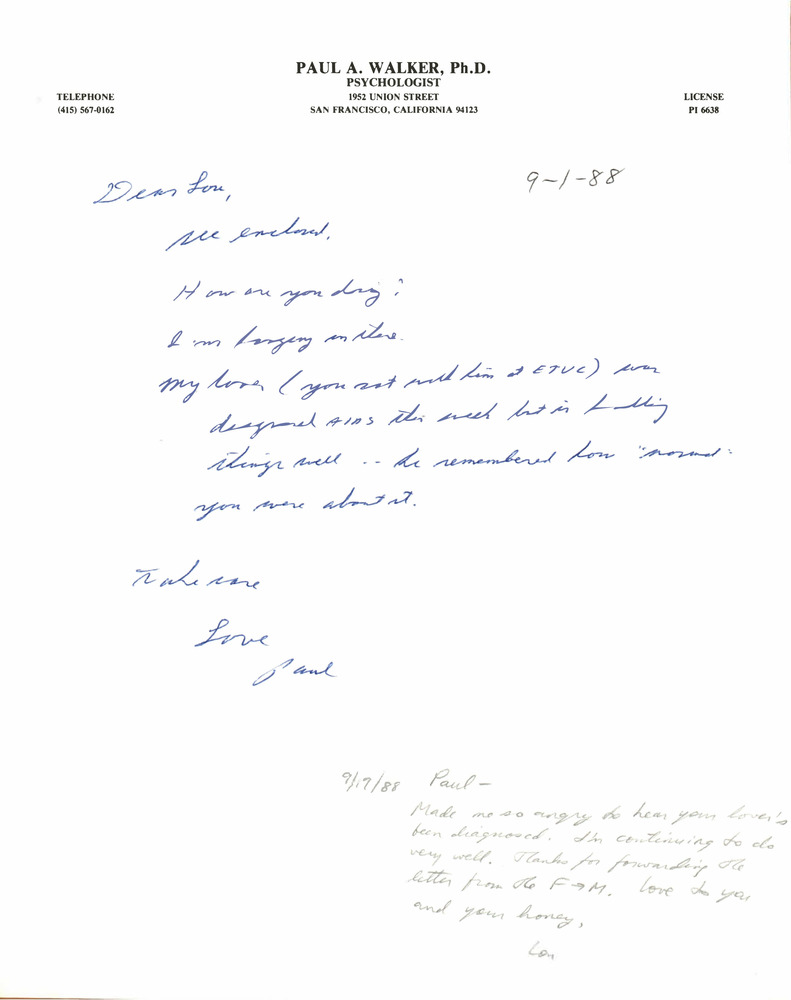 PAUL A. WALKER, Ph.D.
PSYCHOLOGIST
1952 UNION STREET
SAN FRANCISCO, CALIFORNIA 94123
TELEPHONE
(415) 567-0162
LICENSE
PI 6638
9-1-88
Dear Lou,
see enclosed.
How are you doing?
I'm hanging in there.
My lover (you sat with him at ETVC) was
diagnosed AIDS this week but is handling
things well -- he remembered how "normal"
you were about it.
Take care
Love
Paul
9/17/88 Paul –
Made me so angry to hear your lover's
been diagnosed. I'm continuing to do
very well. Thanks for forwarding the
letter from the F→M. Love to you
and your honey,
Lou